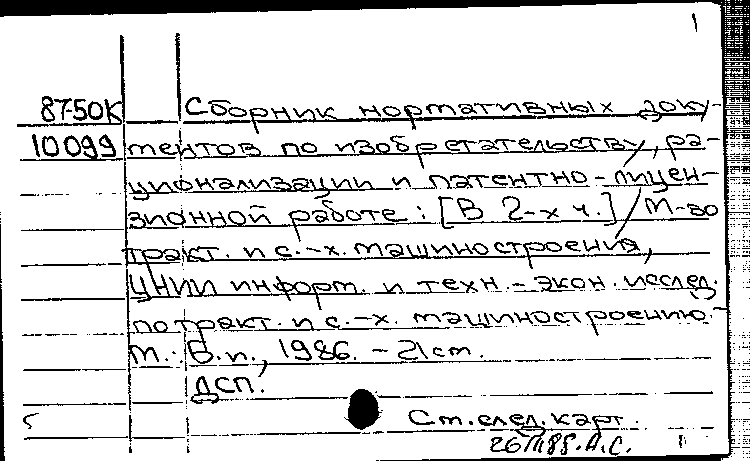 1
87-50К Сборник нормативных доку-
10099 ментов по изобретательству, ра-
ционализации и патентно-лицен-
зионной работе: [В 2-х ч.] / М-во
тракт. и с.-х. машиностроения,
ЦНИИ информ. и техн.-экон. исслед.
по тракт. и с.-х. машиностроению.-
М.: Б.и., 1986. - 21 см.
ДСП.
См. след. карт.